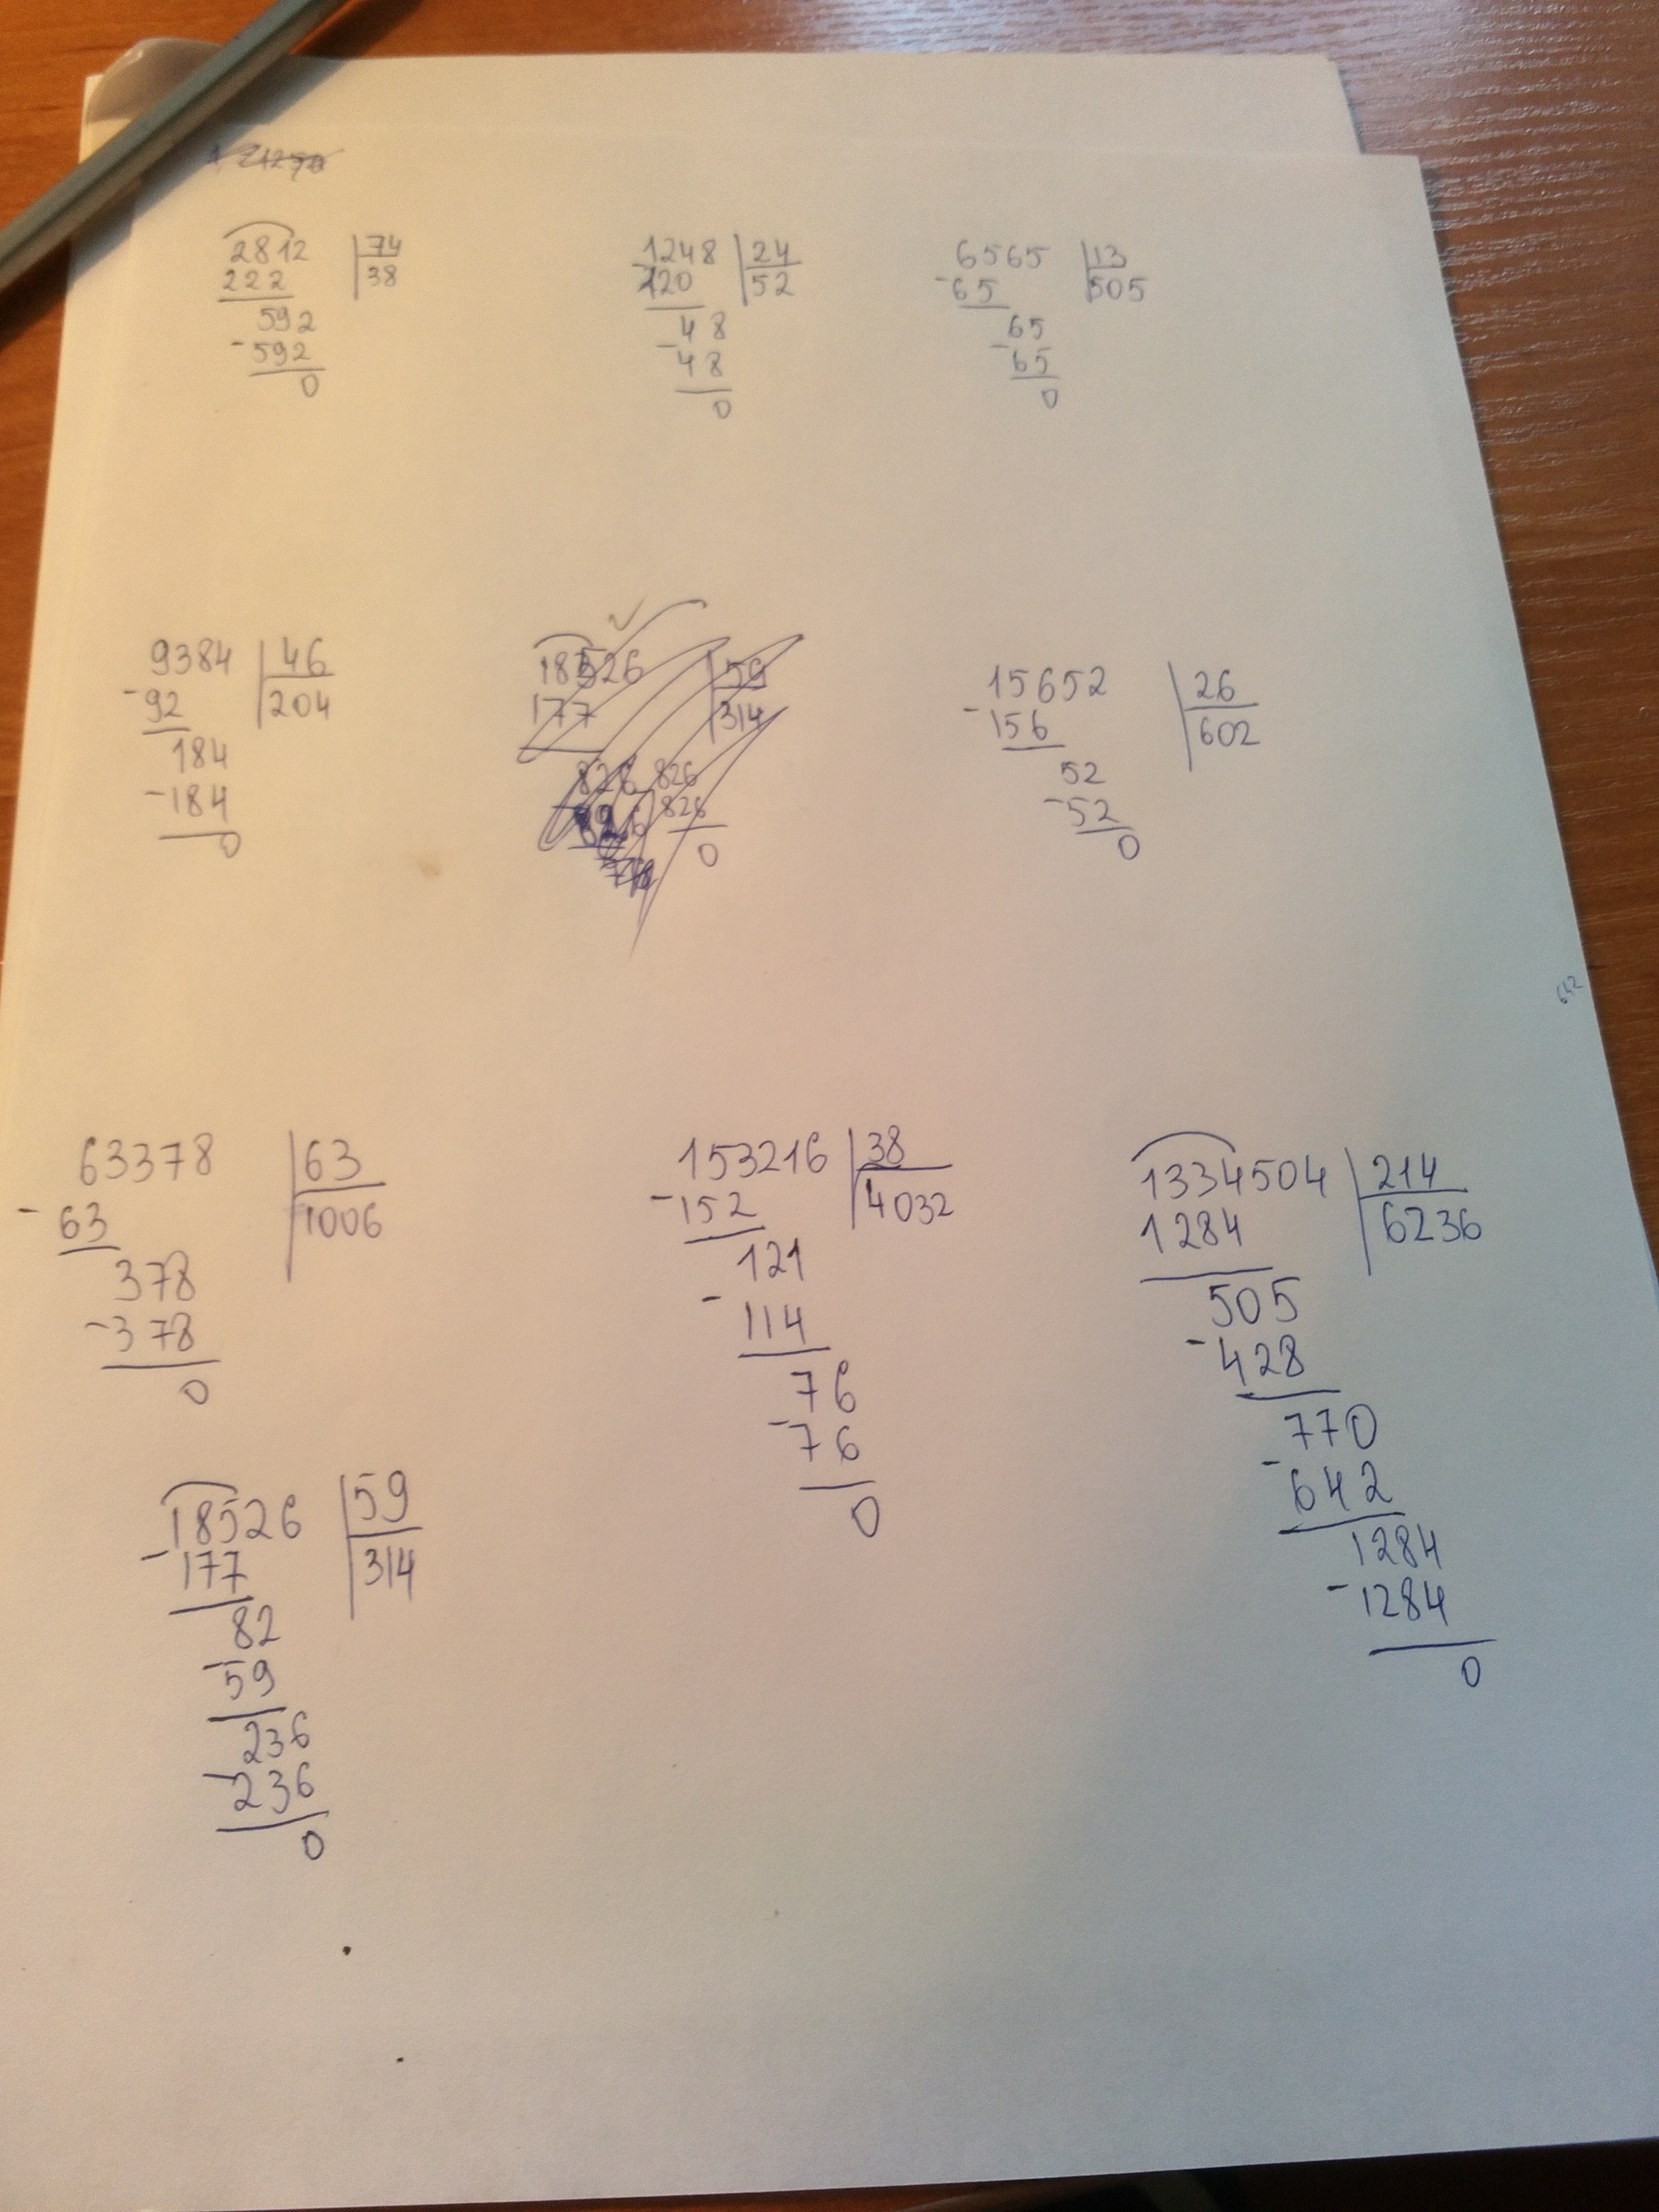 2812 74
222 38
592
-592
0
1248 24
-120 52
48
-48
0
6565 13
-65 505
65
-65
0
9384 46
-92 204
184
-184
0
18526 59
177 314
826 826
826
0
15652 26
-156 602
52
-52
0
642
63378 63
-63 1006
378
-378
0
153216 38
-152 4032
121
-114
76
-76
0
1334504 214
1284 6236
505
-428
770
-642
1284
-1284
0
18526 59
-177 314
82
-59
236
-236
0